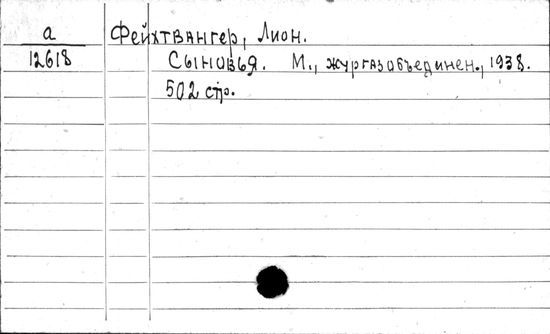 а Фейхтвангер, Лион.
12618 Сыновья. М., жургазобъединен., 1938.
502 стр.